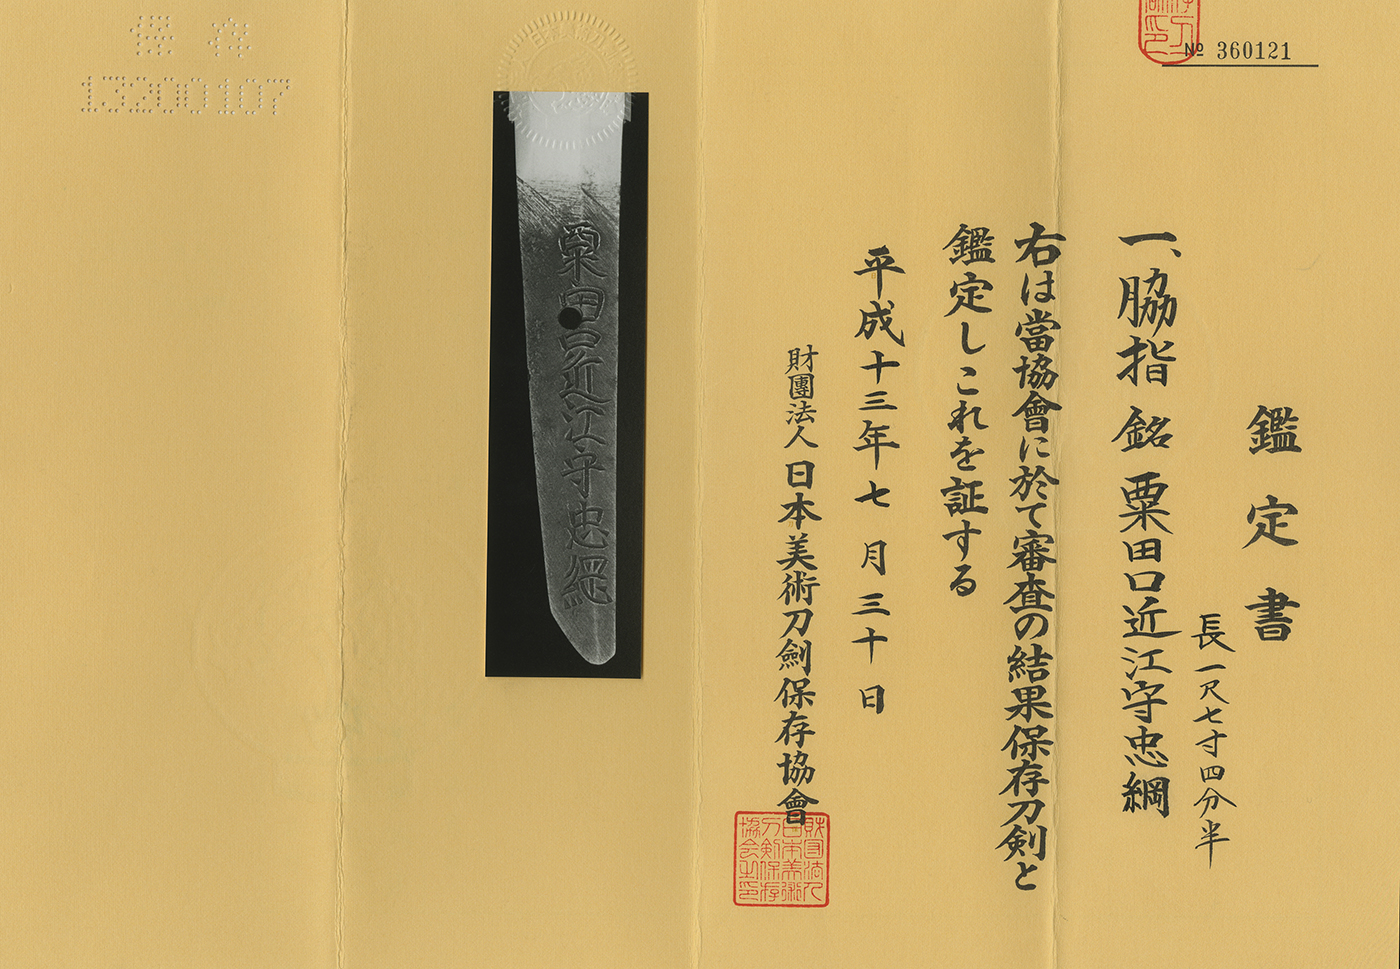 № 360121
鑑定書
長一尺七寸四分半
一、脇指 銘 粟田口近江守忠綱
右は當協會に於て審査の結果保存刀剣と
鑑定しこれを証する
平成十三年七月三十日
財團法人日本美術刀劍保存協會
財団法人
日本美術
刀剣保存
協会之印
粟田口近江守忠綱
保存
13200107